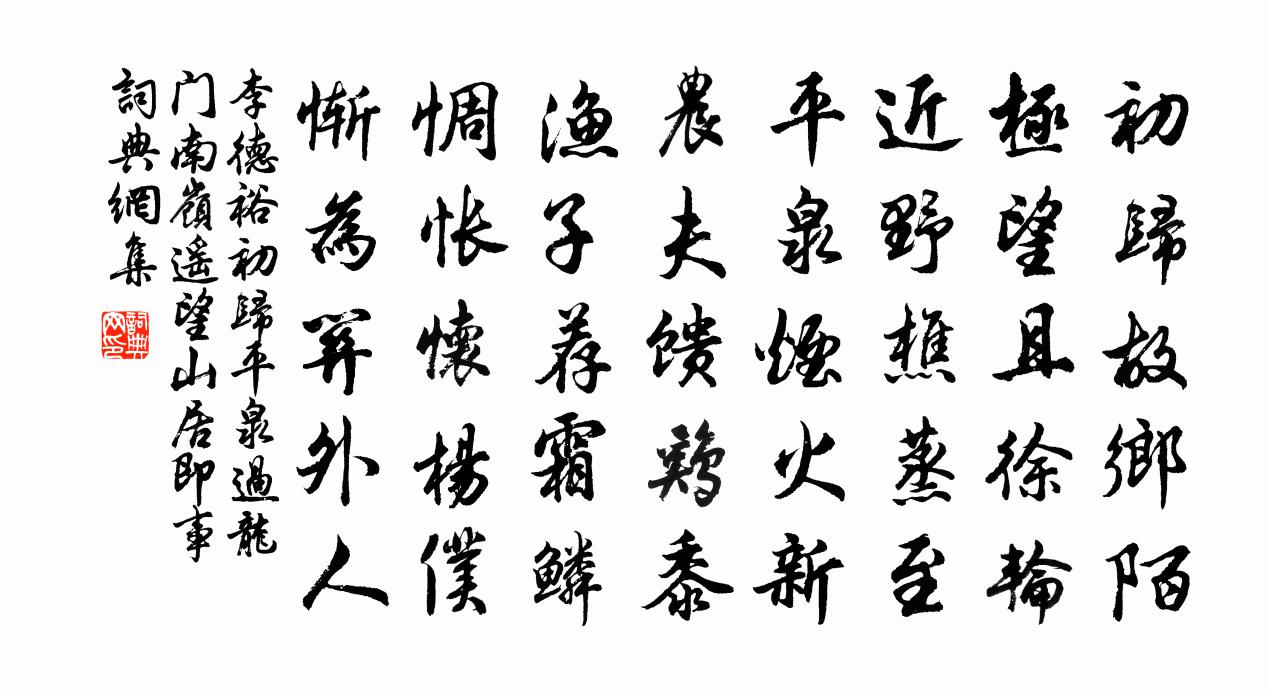 初歸故鄉陌
極望且徐輪
近野樵蒸至
平泉煙火新
農夫馈鷄黍
渔子荐霜鱗
惆怅懷楊僕
慚為關外人
李德裕初歸平泉過龍
门南嶺遥望山居即事
詞典網集
詞典网印